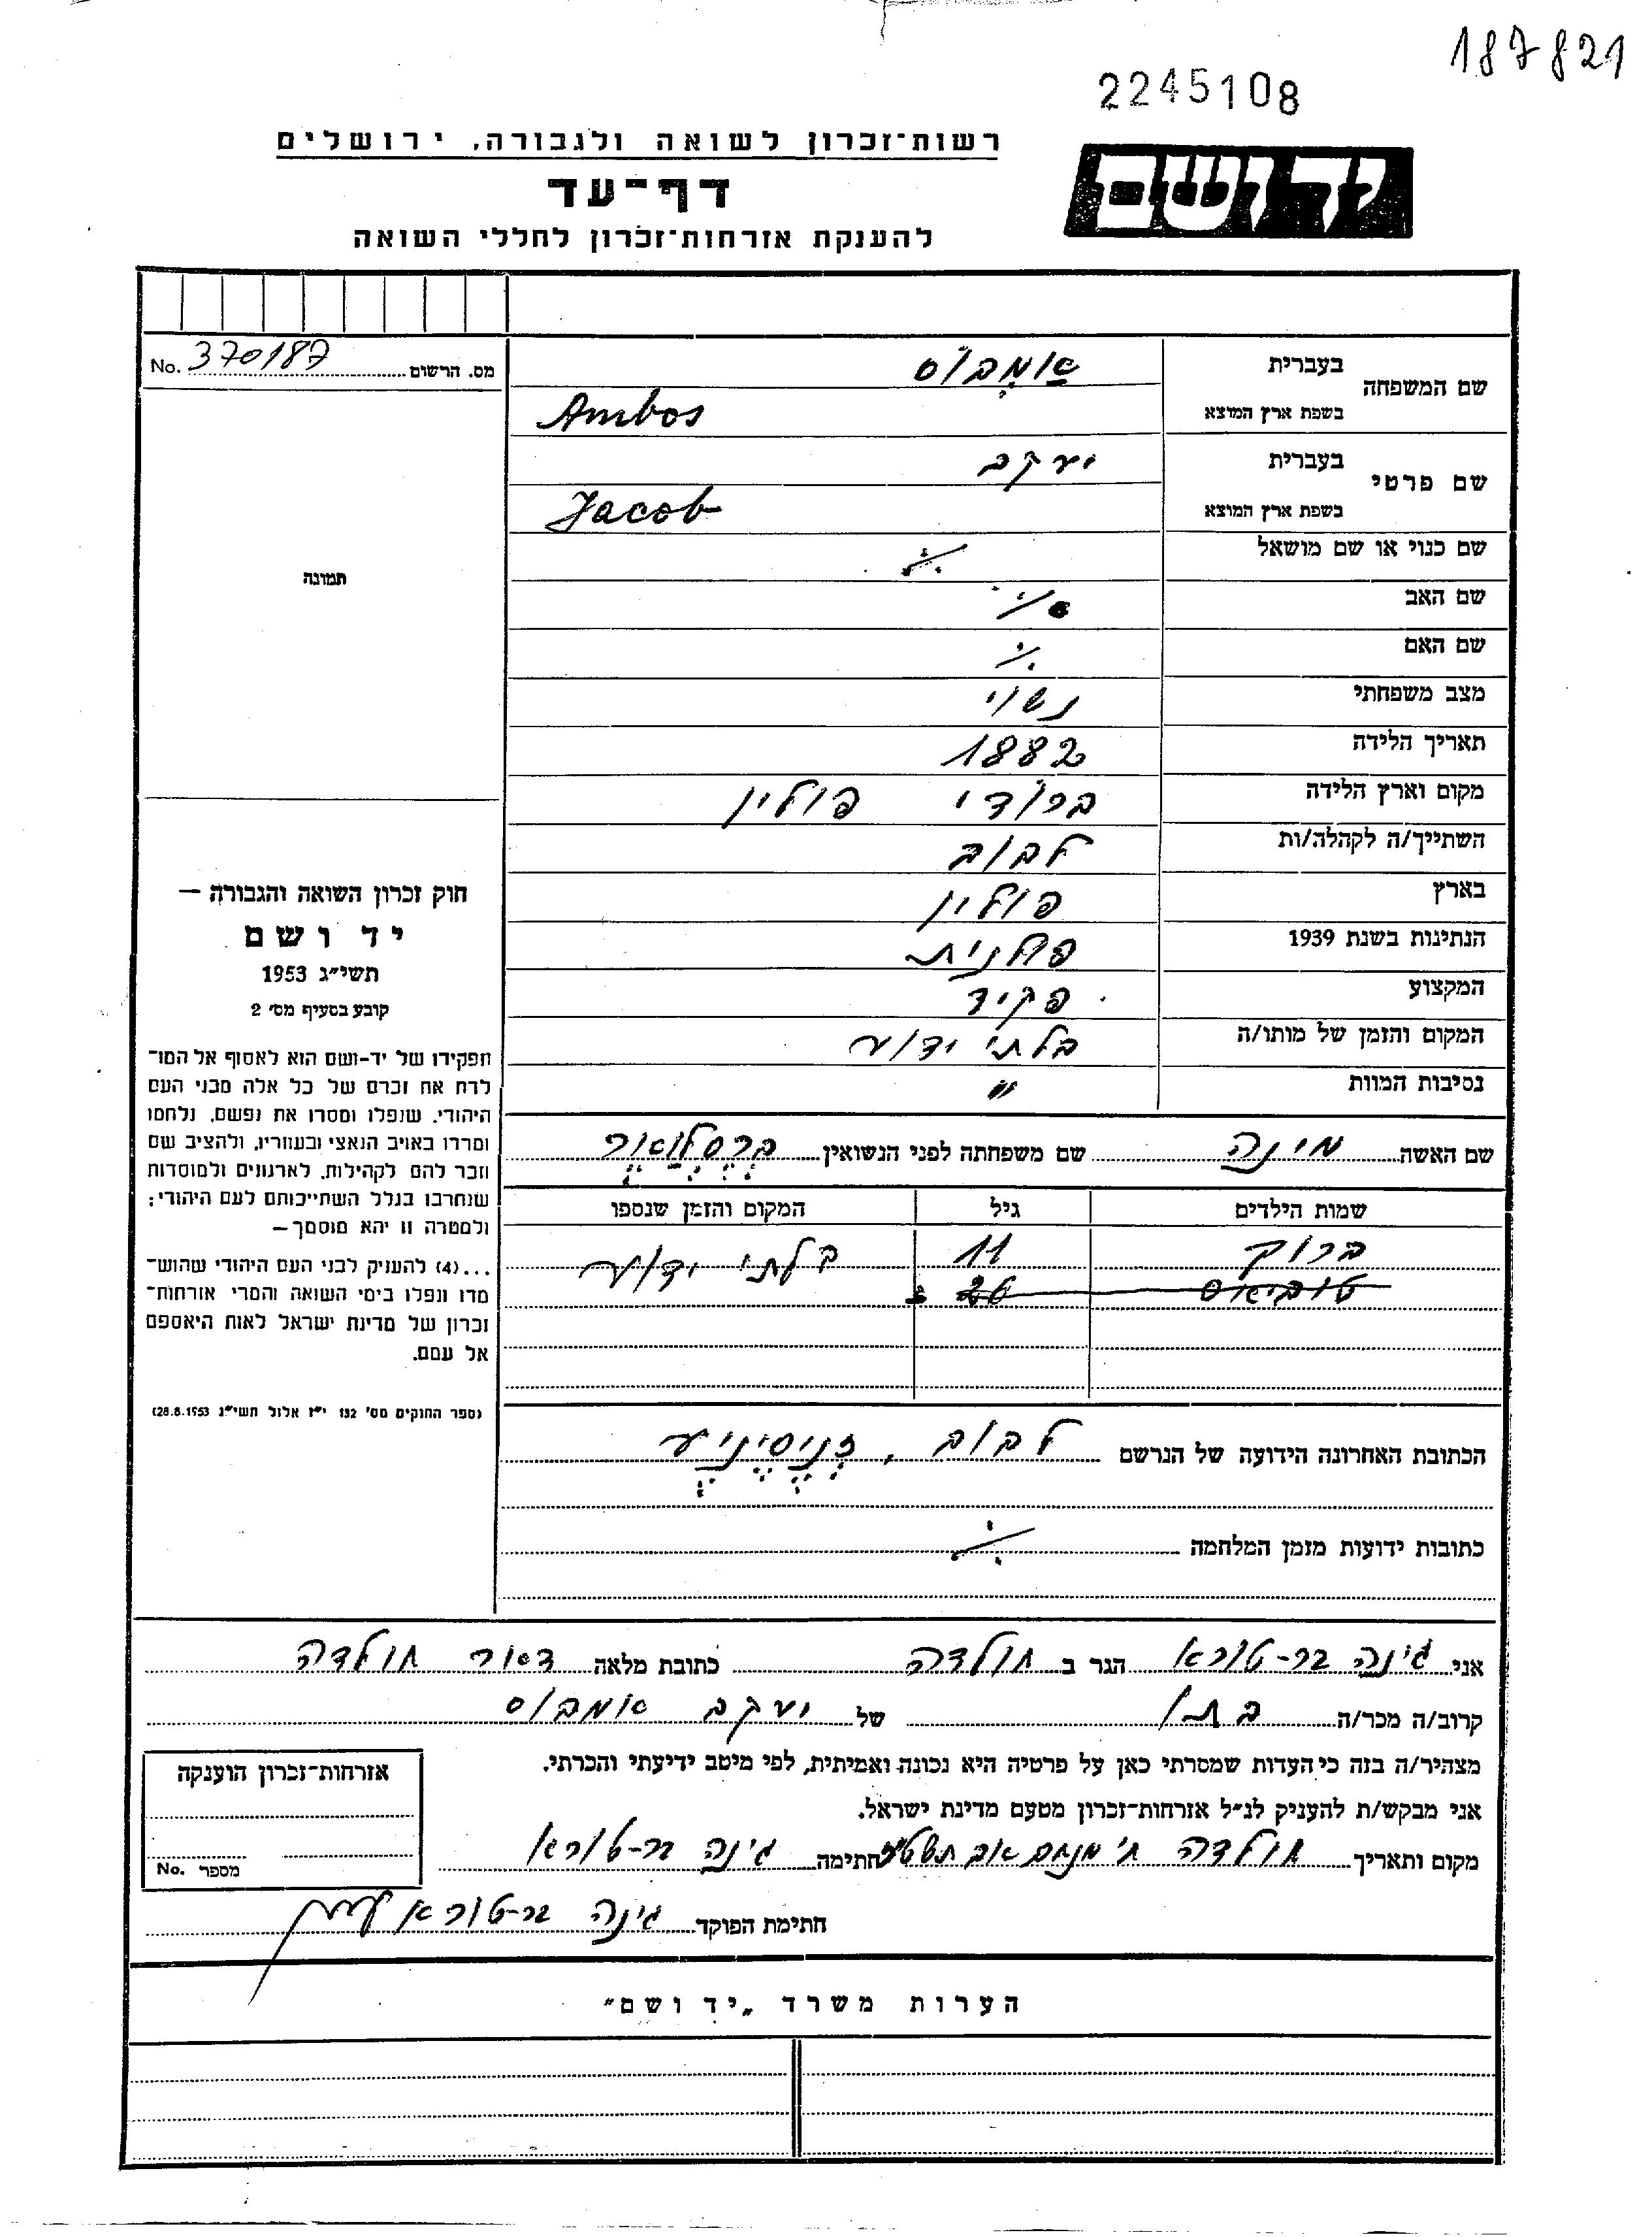 187821
2245108
רשות־זכרון לשואה ולגבורה, ירושלים
יד ושם
דף־עד
להענקת אזרחות־זכרון לחללי השואה
מס. הרשום 370187 No.
שם המשפחה בעברית אַמְבּוֹס
בשפת ארץ המוצא Ambos
שם פרטי בעברית יעקב
בשפת ארץ המוצא Jacob
שם כנוי או שם מושאל ·/·
שם האב ·/·
שם האם ·/·
מצב משפחתי נשוי
תאריך הלידה 1882
מקום וארץ הלידה ברודי פולין
השתייך/ה לקהלה/ות לבוב
בארץ פולין
הנתינות בשנת 1939 פולנית
המקצוע פקיד
המקום והזמן של מותו/ה בלתי ידוע
נסיבות המוות "
תמונה
חוק זכרון השואה והגבורה —
יד ושם
תשי״ג 1953
קובע בסעיף מס׳ 2
תפקידו של יד-ושם הוא לאסוף אל המו־
לדת את זכרם של כל אלה מבני העם
היהודי, שנפלו ומסרו את נפשם, נלחמו
ומרדו באויב הנאצי ובעוזריו, ולהציב שם
וזכר להם לקהילות, לארגונים ולמוסדות
שנחרבו בגלל השתייכותם לעם היהודי;
ולמטרה זו יהא מוסמך—
...(4) להעניק לבני העם היהודי שהוש־
מדו ונפלו בימי השואה והמרי אזרחות־
זכרון של מדינת ישראל לאות היאספם
אל עמם.
(ספר החוקים מס׳ 132 י״ז אלול תשי״ג 28.8.1953)
שם האשה מינה שם משפחתה לפני הנשואין
שמות הילדים גיל המקום והזמן שנספו
ברוך 11 בלתי ידוע
טוביאס 26
הכתובת האחרונה הידועה של הנרשם לבוב,
כתובות ידועות מזמן המלחמה ·/·
אני גינה בר-טורא הגר ב חולדה כתובת מלאה דאר חולדה
קרוב/ה מכר/ה בתו של יעקב אמבוס
מצהיר/ה בזה כי העדות שמסרתי כאן על פרטיה היא נכונה ואמיתית, לפי מיטב ידיעתי והכרתי.
אני מבקש/ת להעניק לנ״ל אזרחות־זכרון מטעם מדינת ישראל.
מקום ותאריך חולדה ח׳ מנחם אב חתימה גינה בר-טורא
חתימת הפוקד גינה בר-טורא
אזרחות־זכרון הוענקה
מספר No.
הערות משרד „יד ושם״